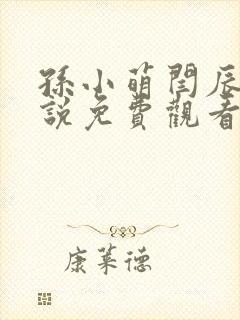 孫小萌閆辰
說免費觀看
康萊德